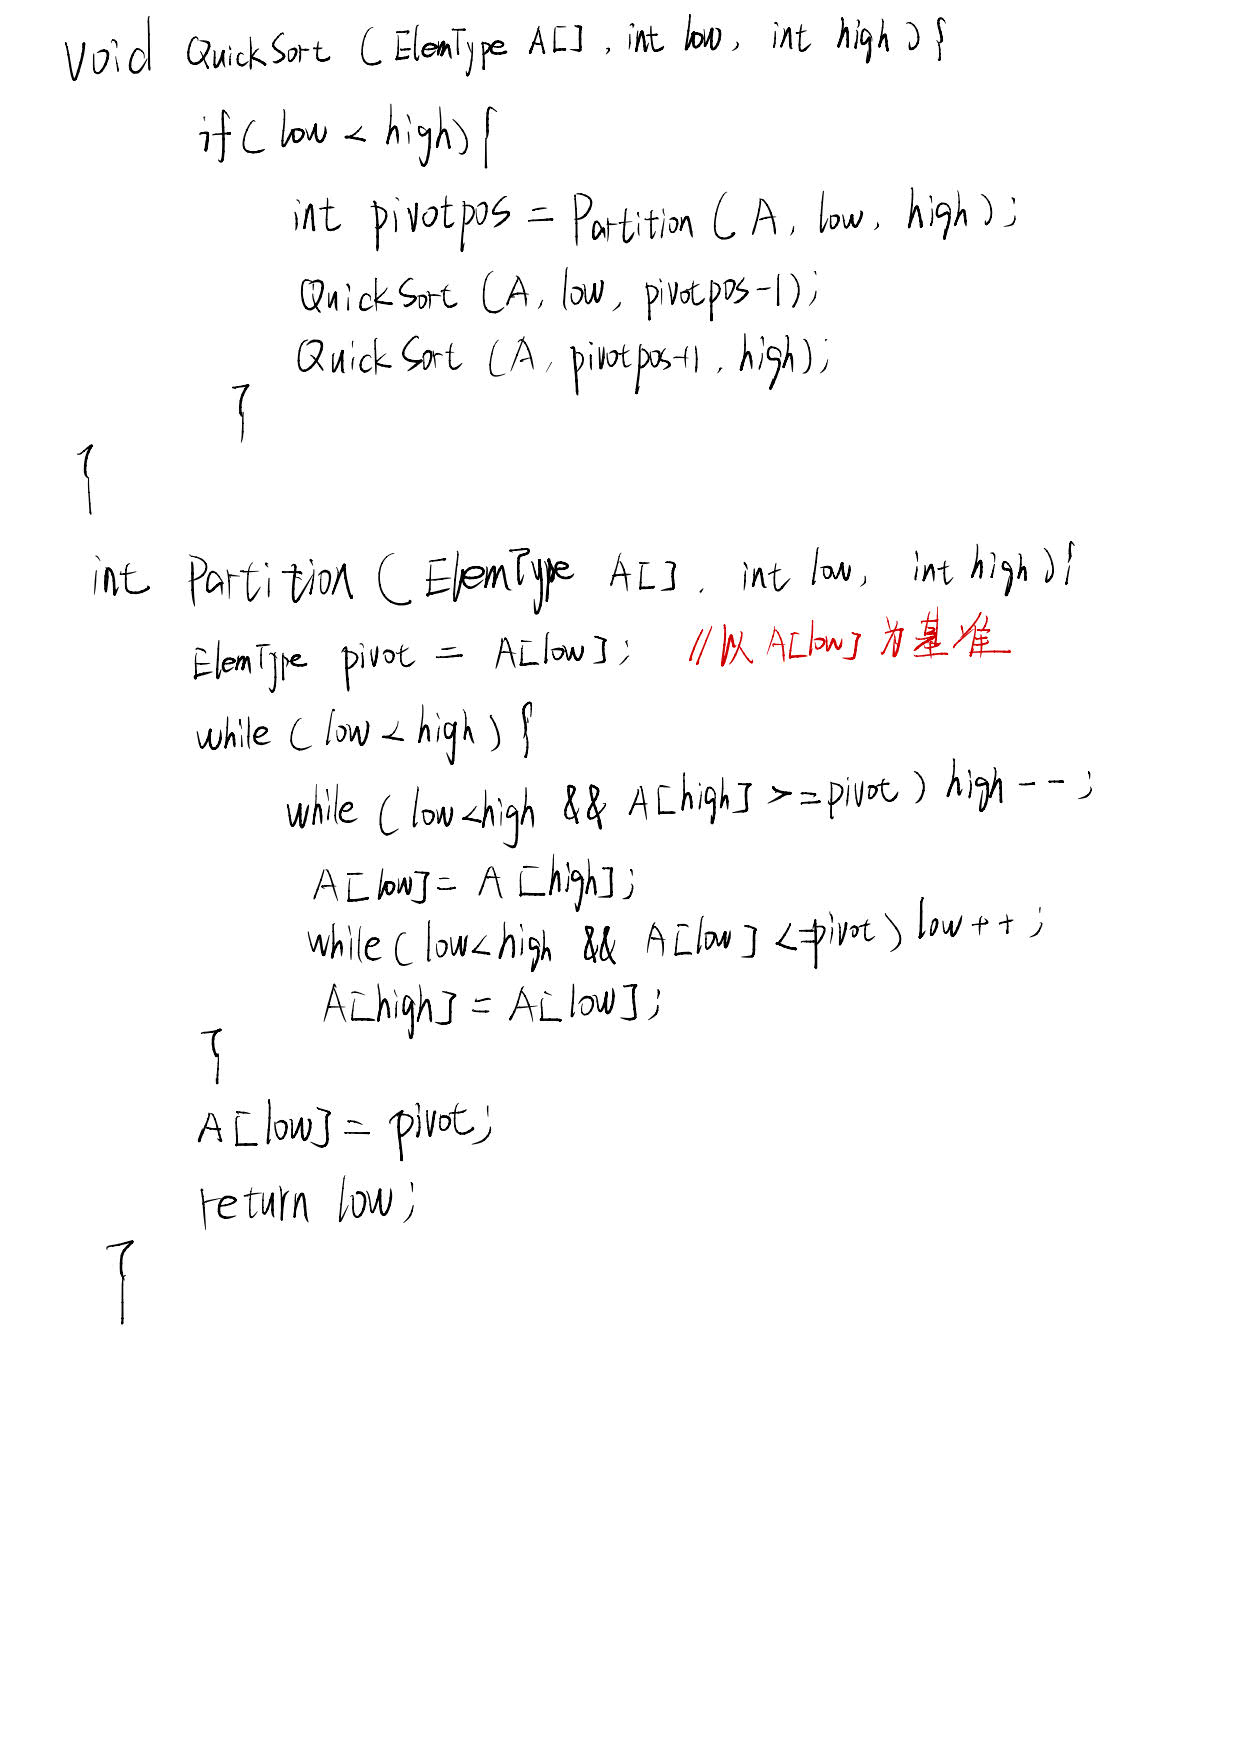 void QuickSort (ElemType A[], int low, int high){
if(low < high){
int pivotpos = Partition (A, low, high);
QuickSort (A, low, pivotpos-1);
QuickSort (A, pivotpos+1, high);
}
}
int Partition (ElemType A[], int low, int high){
ElemType pivot = A[low]; //以A[low]为基准
while (low < high) {
while (low<high && A[high] >=pivot) high--;
A[low]= A[high];
while(low<high && A[low] <=pivot) low++;
A[high] = A[low];
}
A[low] = pivot;
return low;
}